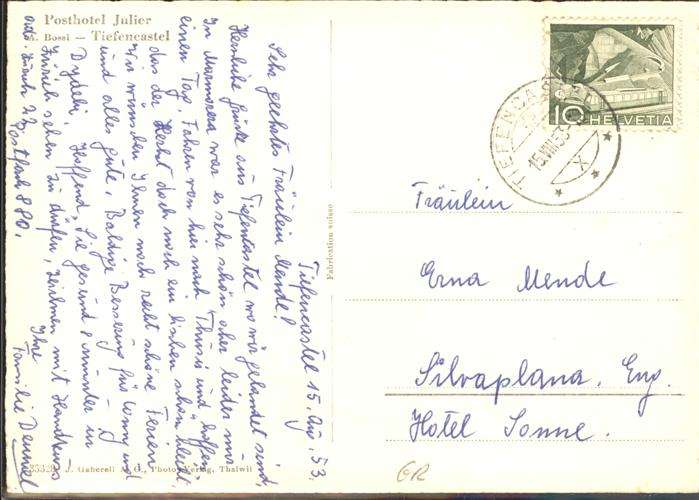 Posthotel Julier
A. Bossi — Tiefencastel
Tiefencastel 15. Aug. 53.
Sehr geehrtes Fräulein Mende!
Herzliche Grüsse aus Tiefencastel wo wir gelandet sind
In Marmorera war es sehr schön aber leider nur
einen Tag. Fahren von hier nach Thusis und hoffen,
das der Herbst doch noch ein bischen schön bleibt.
Wir wünschen Ihnen noch recht schöne Ferien
und alles gute, Baldige Besserung für
Hoffend, Sie gesund & munter in
Zürich sehen zu dürfen, zeichnen mit Handkuss
Ihre
Familie
Postfach 880.
Fabrication suisse
J. Gaberell A. G., Photo-Verlag, Thalwil
HELVETIA
10
TIEFENCASTEL
15.VIII.53
X
Fräulein
Erna Mende
Silvaplana. Eng.
Hotel Sonne.
GR